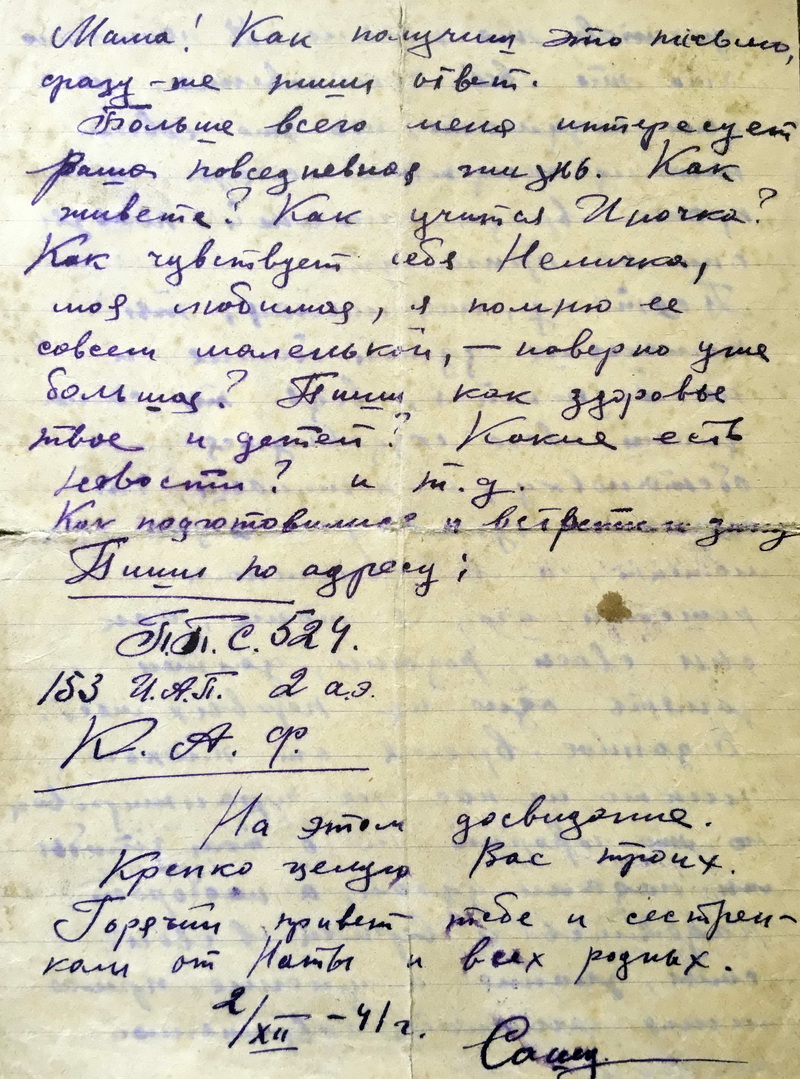 Мама! Как получиш это письмо,
сразу-же пиши ответ.
Больше всего меня интересует
ваша повседневная жизнь. Как
живете? Как учится Ирочка?
Как чувствует себя Неличка,
моя любимая, я помню ее
совсем маленькой, – наверно уже
большая? Пиши как здоровье
твое и детей? Какие есть
новости? и т.д.
Как подготовились и встретили зиму
Пиши по адресу:
П.П.С. 524.
153 И.А.П. 2 а.э.
К. А. Ф.
На этом досвидание.
Крепко целую Вас троих.
Горячий привет тебе и сестрен-
кам от Наты и всех родных.
2/XII – 41 г.
Саша